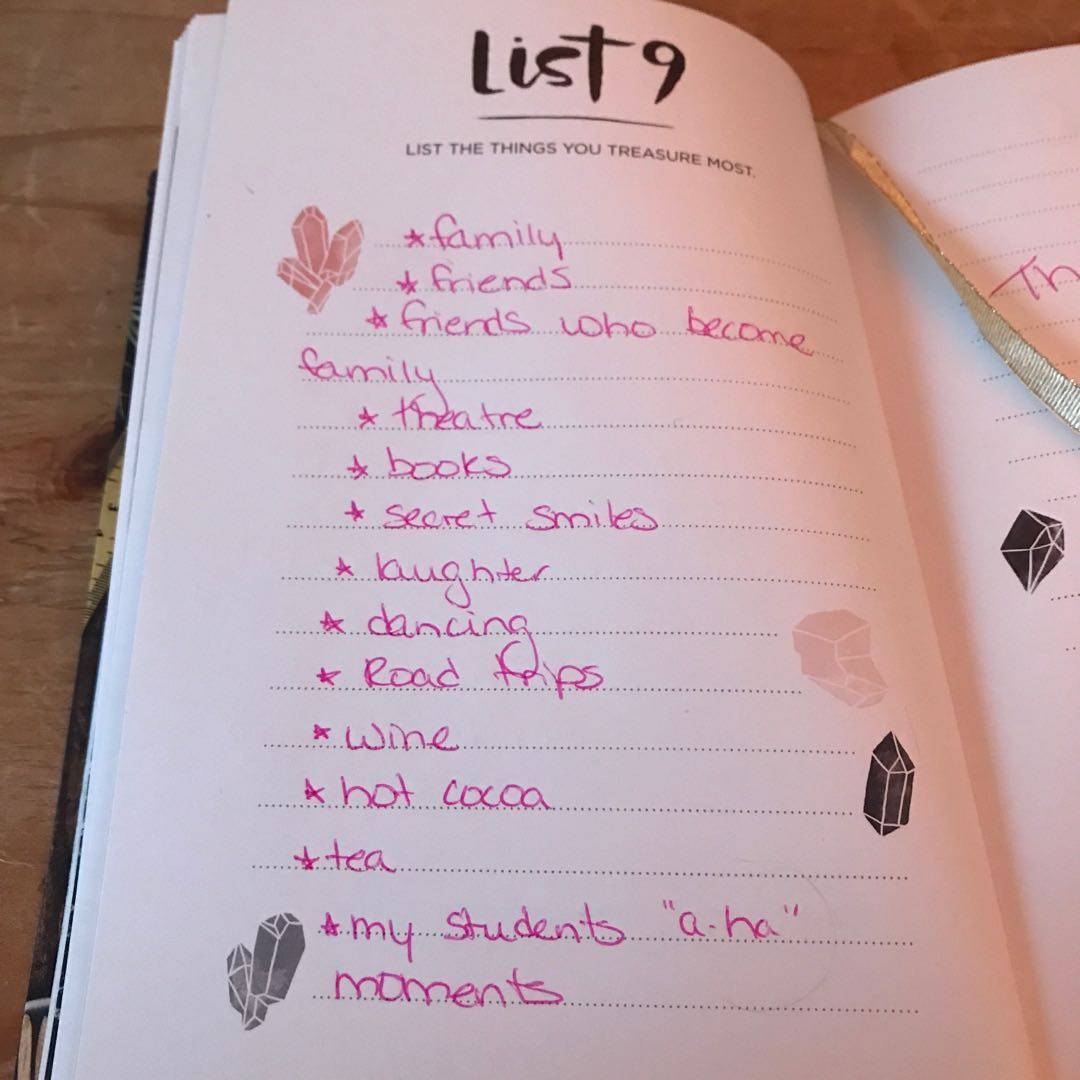 List 9
LIST THE THINGS YOU TREASURE MOST.
★ family
★ friends
★ friends who become
family
★ theatre
★ books
★ secret smiles
★ laughter
★ dancing
★ Road trips
★ wine
★ hot cocoa
★ tea
★ my students "a-ha"
moments
Th